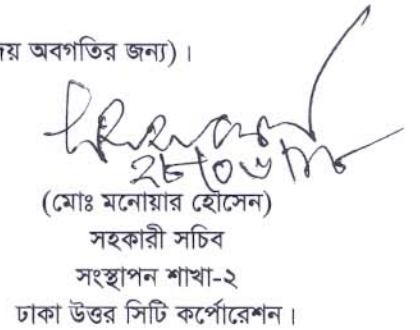 অবগতির জন্য)।
(মোঃ মনোয়ার হোসেন)
সহকারী সচিব
সংস্থাপন শাখা-২
ঢাকা উত্তর সিটি কর্পোরেশন।